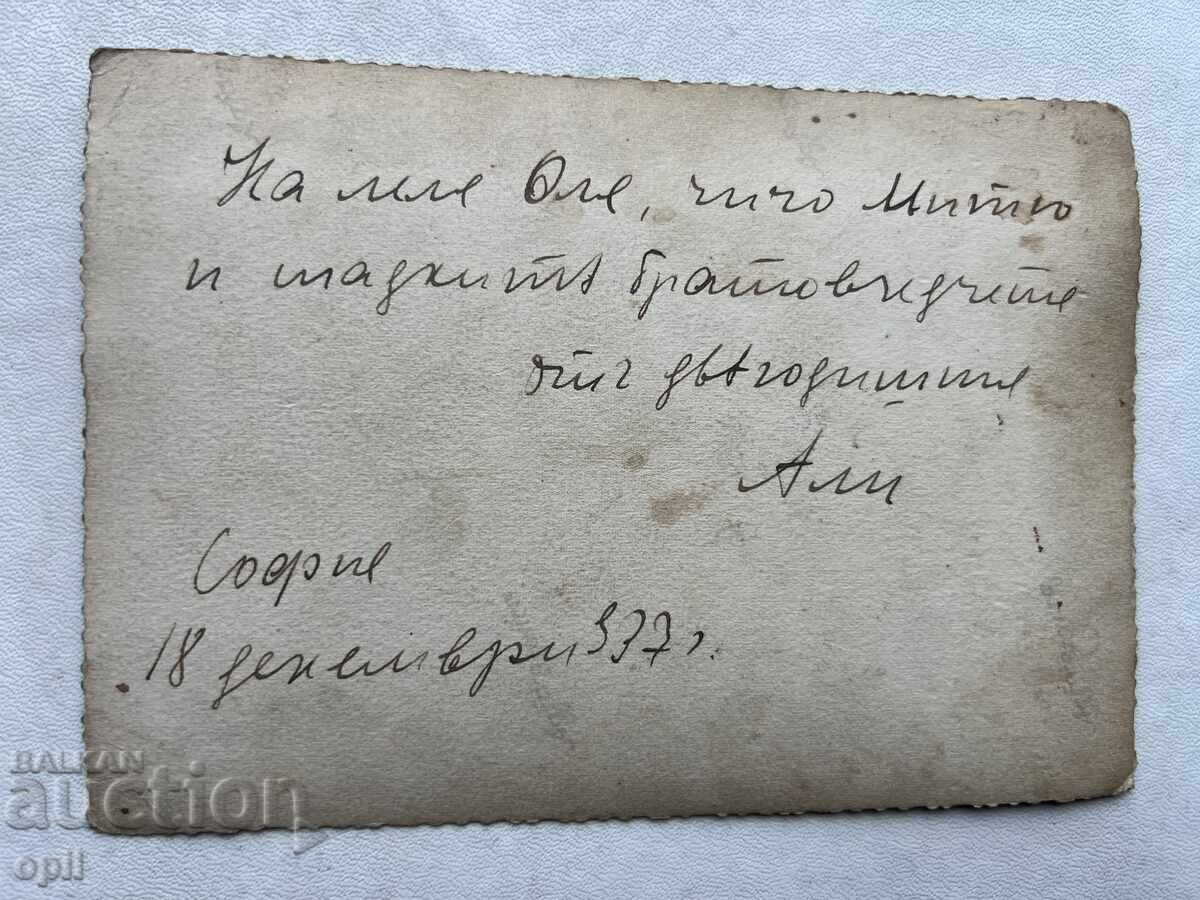 На леля Оля, чичо Митю
и сладкитѣ братовчедчета
отъ двегодишния
Али
София
18 декември 937 г.
BALKAN
auction
opil